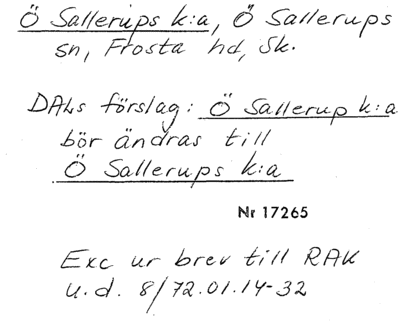 Ö Sallerups k:a, Ö Sallerups
sn, Frosta hd, Sk.
DALs förslag: Ö Sallerup k:a
bör ändras till
Ö Sallerups k:a
Nr 17265
Exc ur brev till RAK
u.d. 8/72.01.14-32